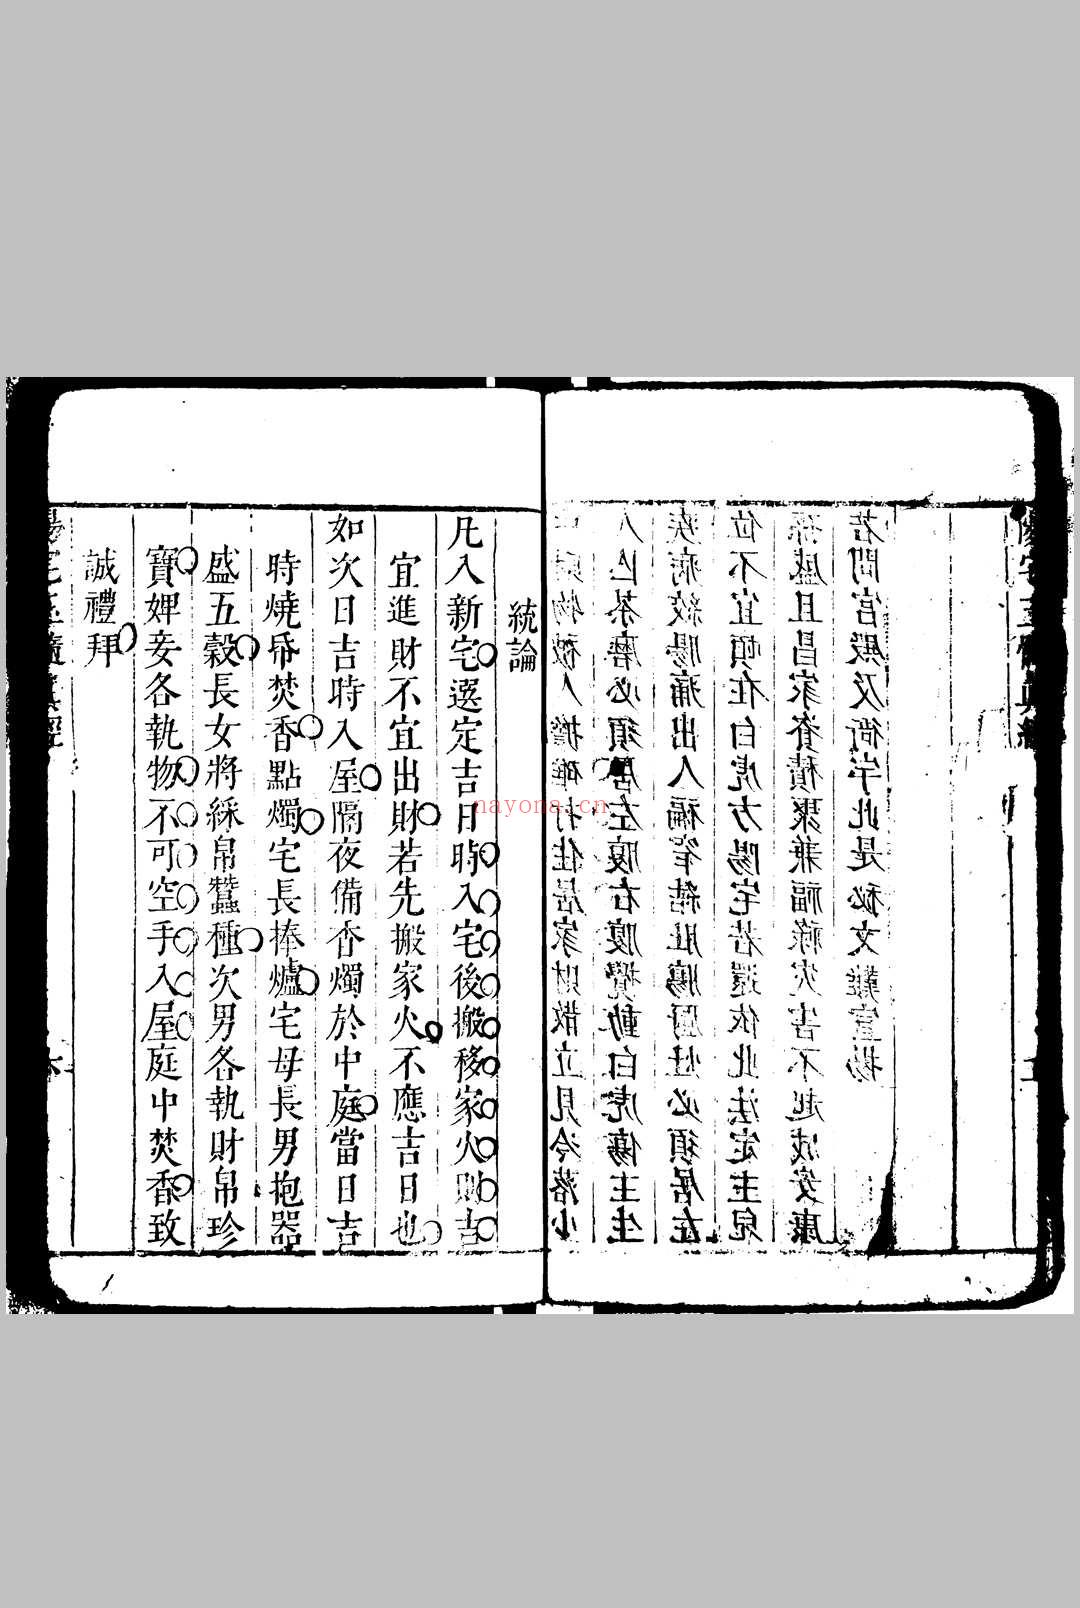 財物被人擔碓打住居家財散立見冷落少
人亡茶磨必須居左腹右腹攪動白虎傷主生
疾病絞腸痛出入福窄結肚腸厨灶必須居左
位不宜頓在白虎方陽宅若還依此法定主兒
孫盛且昌家眷積聚兼福祿災害不起咸安康
若問宮殿及衙宇此是秘文難宣揚
統論
凡入新宅選定吉日時入宅後搬移家火則吉
宜進財不宜出財若先搬家火不應吉日也
如次日吉時入屋隔夜備香燭於中庭當日吉
時燒帋焚香點燭宅長捧爐宅母長男抱器
盛五穀長女將綵帛蠶種次男各執財帛珍
寶婢妾各執物不可空手入屋庭中焚香致
誠禮拜
nayona.cn